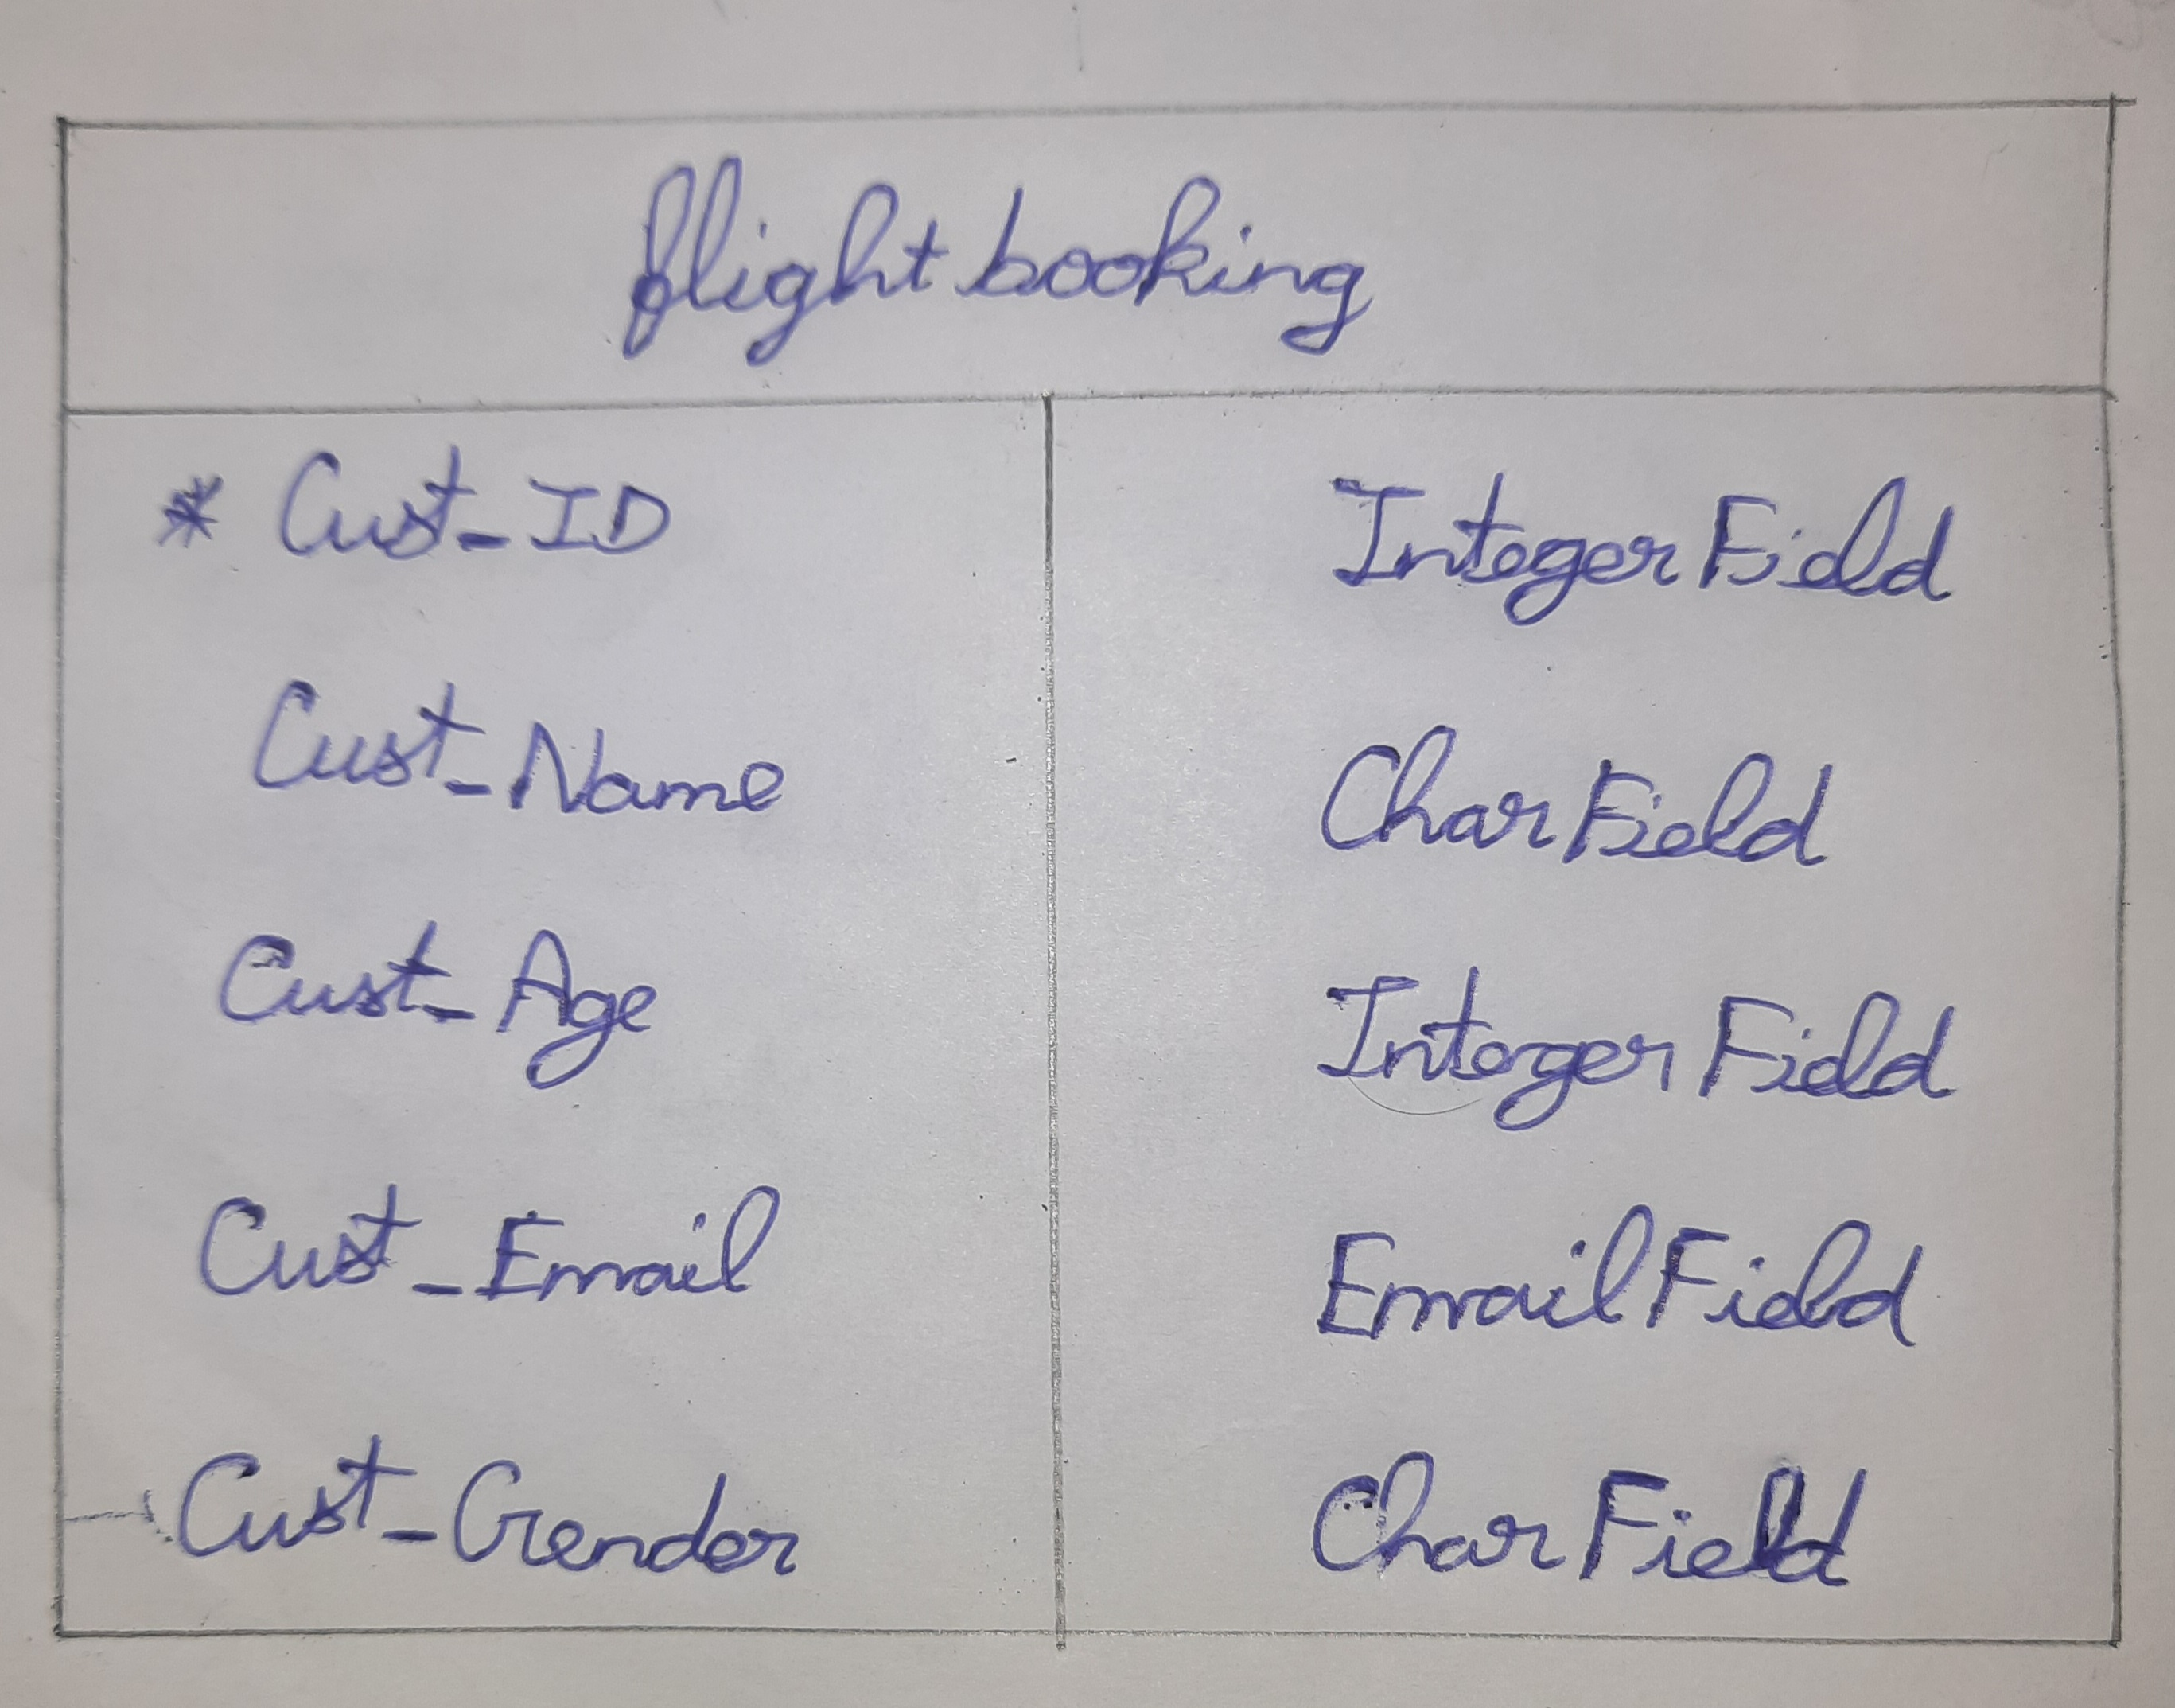 flight booking
* Cust_ID IntegerField
Cust_Name CharField
Cust_Age IntegerField
Cust_Email EmailField
Cust_Gender CharField